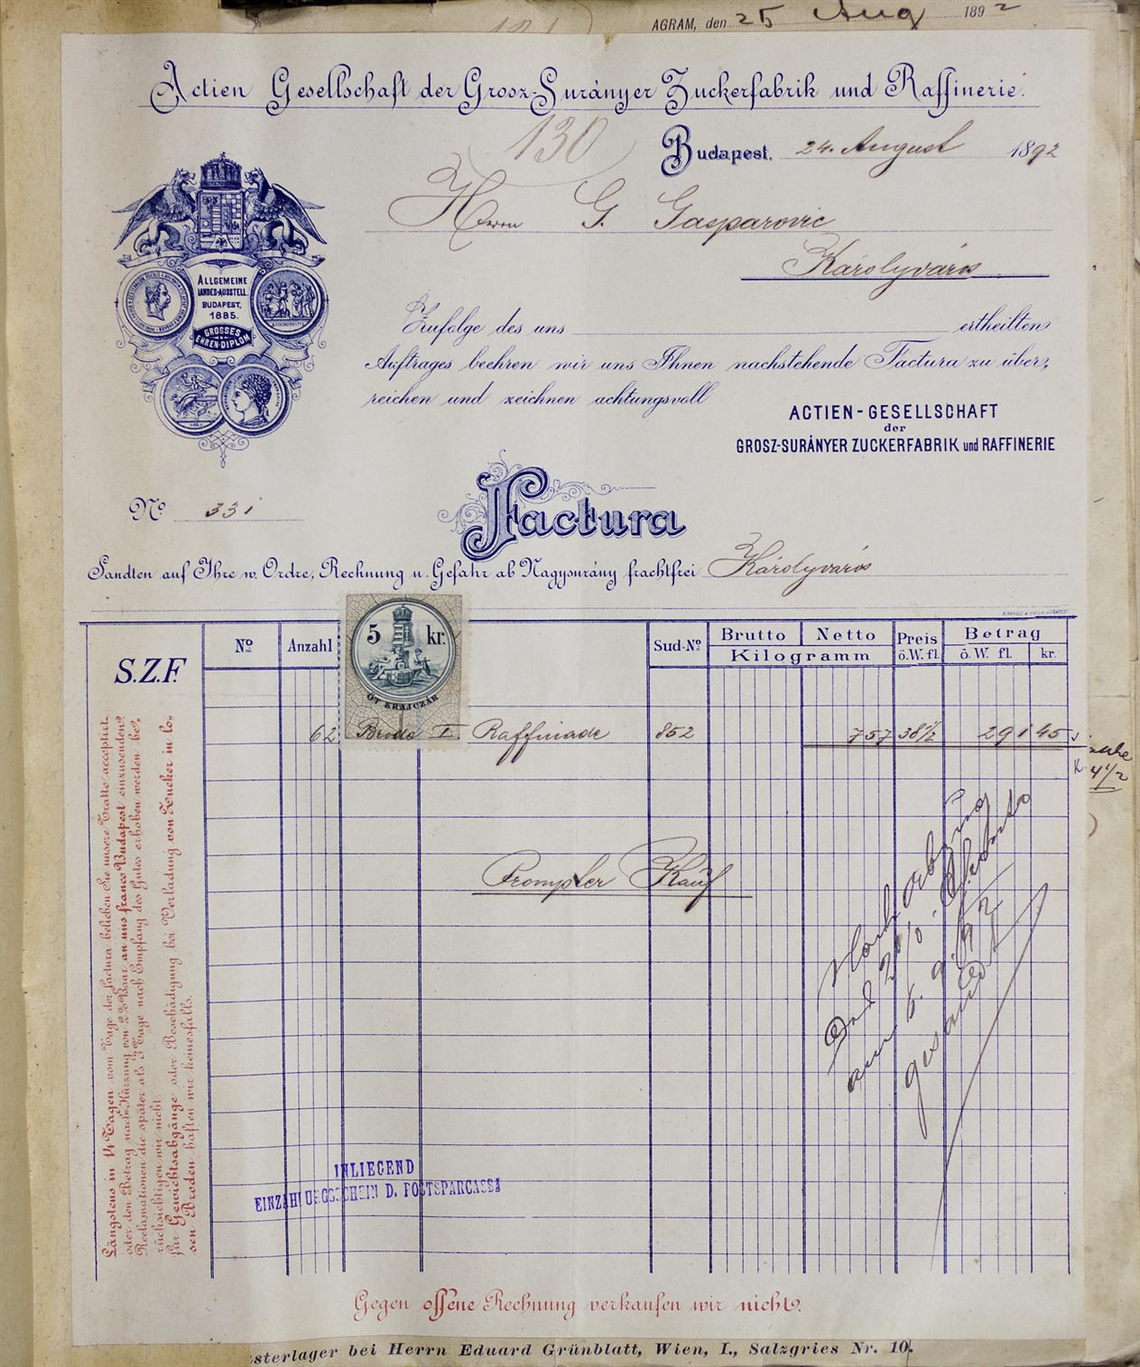 AGRAM, den 25 Aug 1892
Actien Gesellschaft der Grosz-Surányer Zuckerfabrik und Raffinerie.
130
Budapest, 24. August 1892
Herrn G. Gasparovic
Károlyváros
ALLGEMEINE
LANDES-AUSSTELL.
BUDAPEST,
1885.
GROSSES
EHREN-DIPLOM
Zufolge des uns ertheilten
Auftrages beehren wir uns Ihnen nachstehende Factura zu über-
reichen und zeichnen achtungsvoll
ACTIEN-GESELLSCHAFT
der
GROSZ-SURÁNYER ZUCKERFABRIK und RAFFINERIE
No 331
Factura
Sandten auf Ihre w. Ordre, Rechnung u. Gefahr ab Nagysurány frachtfrei Károlyváros
No Anzahl Sud-No Brutto Netto Preis Betrag
Kilogramm ö.W. fl. ö. W. fl. kr.
S.Z.F.
5 kr.
ÖT KRAJCZÁR
62 Brode I. Raffinade 852 757 38 1/2 291 45
K. 4 1/2
Prompter Kauf
Nach Abzug
2%
am 5. 9. 92
gesandt
Längstens in 14 Tagen vom Tage der Factura belieben Sie unsere Tratte acceptirt
oder den Betrag nach Kürzung von 2% Baar an uns franco Budapest einzusenden.
Reclamationen die später als 3 Tage nach Empfang des Gutes erhoben werden be-
rücksichtigen wir nicht.
für Gewichtsabgänge oder Beschädigung bei Verladung von Zucker in lo-
sen Broden haften wir keinesfalls.
INLIEGEND
EINZAHLUNGSSCHEIN D. POSTSPARCASSA
Gegen offene Rechnung verkaufen wir nicht.
sterlager bei Herrn Eduard Grünblatt, Wien, I., Salzgries Nr. 10.